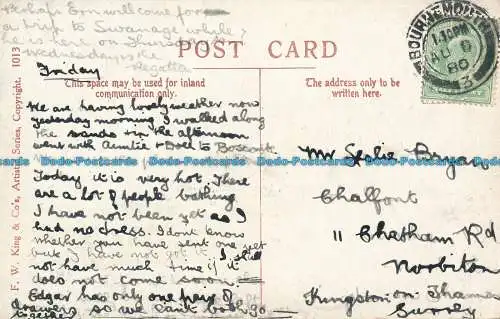 Perhaps Eym will come for
a trip to Swanage while
he is here on Thursday
Wednesday's the
Regatta
POST CARD
BOURNEMOUTH
1.10PM
AU 8
3
Friday
This space may be used for inland
communication only.
The address only to be
written here.
F. W. King & Co's, Artistic Series, Copyright. 1013
We are having lovely weather now
yesterday morning I walked along
the sands & in the afternoon
went with Auntie & Doll to Boscombe
Dodo-Postcards Dodo-Postcards Dodo-Postcards Dodo-Postcards Dodo-Postcards
Today it is very hot. There
are a lot of people bathing
I have not been yet as I
had no dress. I dont know
whether you have sent one yet
but I have not got it. I shall
not have much time if it
does not come soon.
Edgar has only one pair of
drawers so we can't both go
together
Mr Leslie Bryan
Chalfont
11 Chatham Rd
Norbiton
Kingston on Thames
Surrey